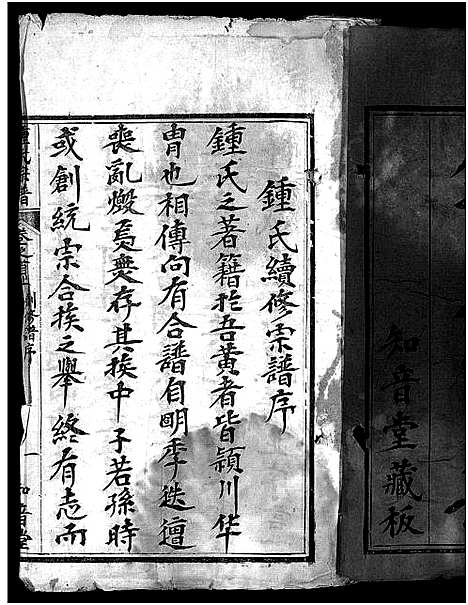 知音堂藏板
鍾氏續修宗譜序
鍾氏之著籍於吾黄者皆頴川华
胄也相傳向有合譜自明季迭遭
喪亂燬焉無存其族中子若孫時
或創統宗合族之舉終有志而
鍾氏宗譜
卷之首
修譜序
一
知音堂